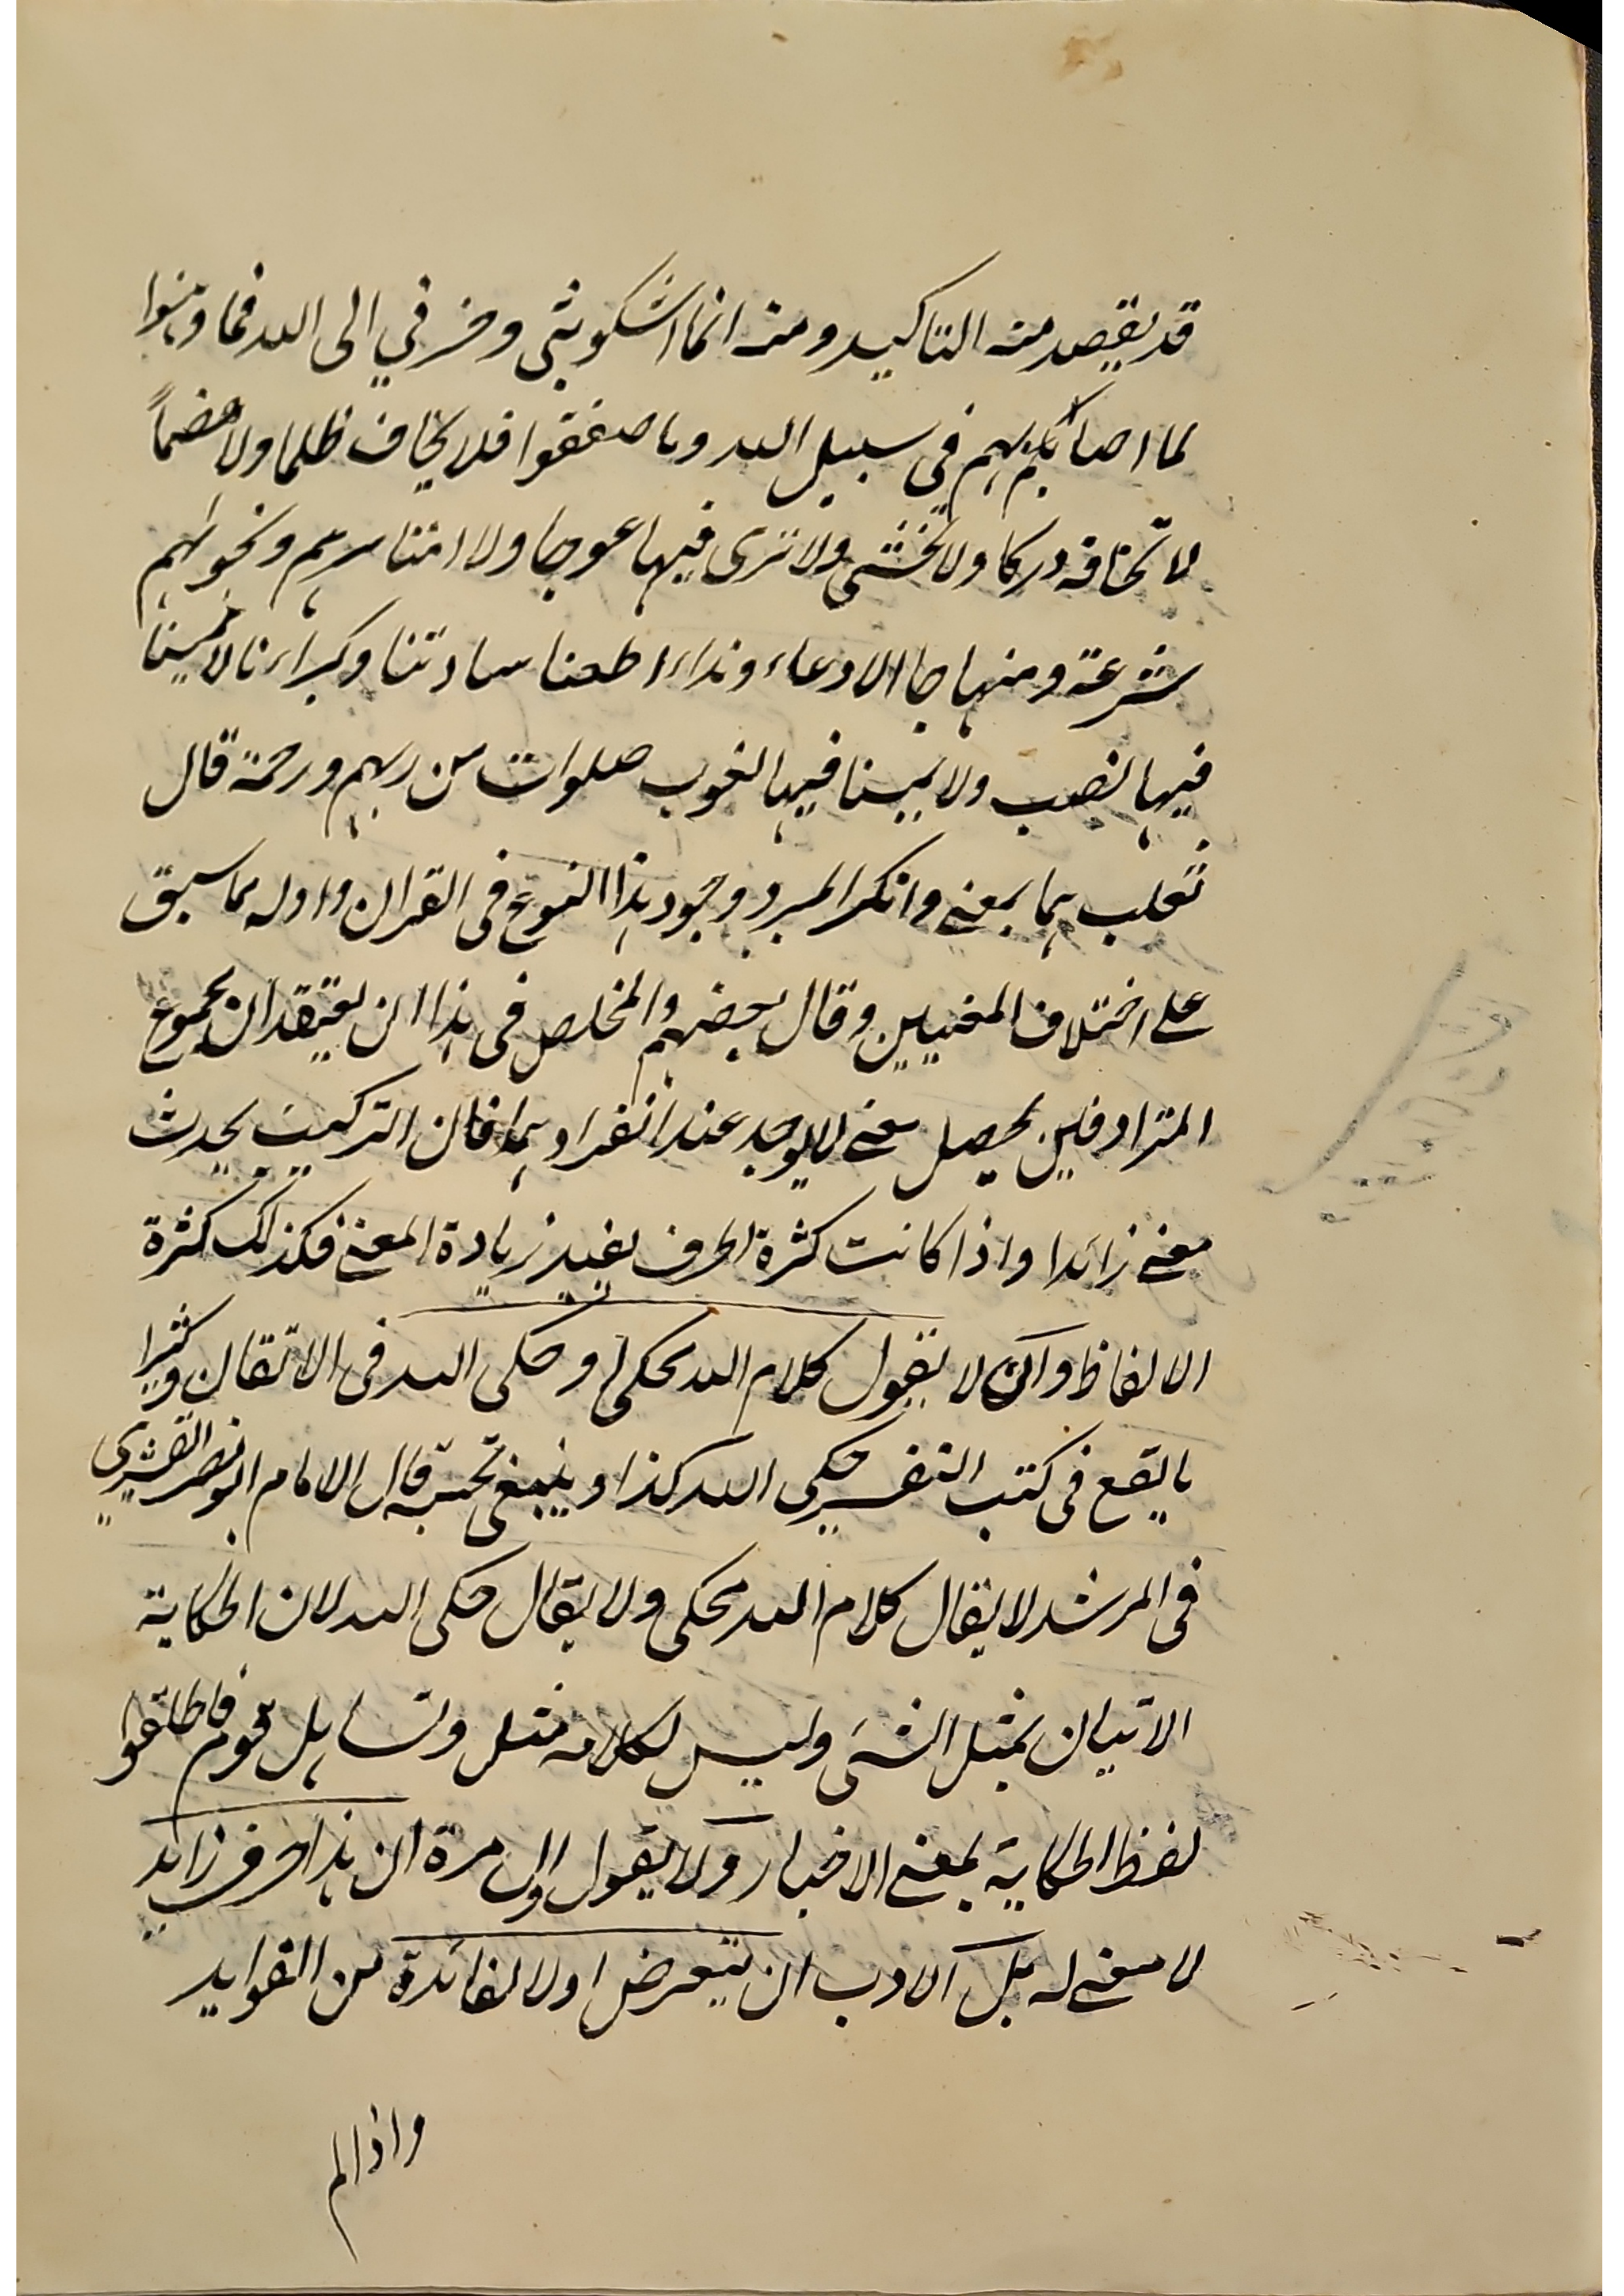 قد يقصد منه التاكيد ومنه انما اشكو بثى وحزني الى الله فما وهنوا
لما اصابهم فى سبيل الله وما ضعفوا فلا يخاف ظلما ولا هضماً
لا تخافه دركا ولا تخشى ولا ترى فيها عوجا ولا امتا سرهم ونجواهم
شرعة ومنهاجا الا دعاء ونداء اطعنا سادتنا وكبراءنا لا يمسنا
فيها نصب ولا يمسنا فيها لغوب صلوات من ربهم ورحمة قال
ثعلب هما بمعنى وانكر المبرد وجود هذا النوع فى القران واوله مما سبق
على اختلاف المعنيين وقال بعضهم والمخلص فى هذا ان يعتقد ان مجموع
المترادفين يحصل معنى لا يوجد عند انفرادهما فان التركيب يحدث
معنى زائدا واذا كانت كثرة الحرف يفيد زيادة المعنى فكذلك كثرة
الالفاظ وان لا يقول كلام الله محكى او حكى الله فى الاتقان وكثيرا
ما يقع فى كتب التفسير حكى الله كذا وينبغى تجنبه قال الامام ابو نصر القشيرى
فى المرشد لا يقال كلام الله محكى ولا يقال حكى الله لان الحكاية
الاتيان بمثل الشئ وليس لكلامه مثل وتساهل قوم فاطلقوا
لفظ الحكاية بمعنى الاخبار ولا يقول اول مرة ان هذا حرف زائد
لا معنى له بل الادب ان يتعرض اولا لفائدة من الفوايد
واذا لم